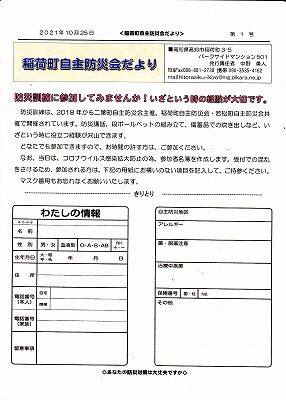 2021年10月25日 <稲荷町自主防災会だより> 第 1 号
稲荷町自主防災会だより
■高知県高知市稲荷町3-5
パークサイドマンション501
発行責任者 中田 美人
防災訓練に参加してみませんか!いざという時の経験が大切です。
防災訓練は、2018年から二葉町自主防災会主催、稲荷町自主防災会・若松町自主防災会共
催で開催されています。防災講話、段ボールベットの組み立て、備蓄品での炊き出しなど、い
ざという時に役立つ経験が沢山できます。
どなたでも参加できますので、お時間の許す方は、ご参加ください。
なお、当日は、コロナウイルス感染拡大防止の為、参加者名簿を作成します。受付での混乱
をさけるため、参加される方は、下の用紙にお構いのない項目を記入して、ご持参ください。
マスク着用もお忘れなくお願いいたします。
きりとり
わたしの情報
名 前
性 別 男・女 血液型 O・A・B・AB
生年月日 年 月 日
住 所
電話番号
(本人)
電話番号
(家族)
留意事項
自主防災地区
アレルギー
薬・服薬注意
治療中疾患
保険番号
その他
◇あなたの防災対策は大丈夫ですか◇